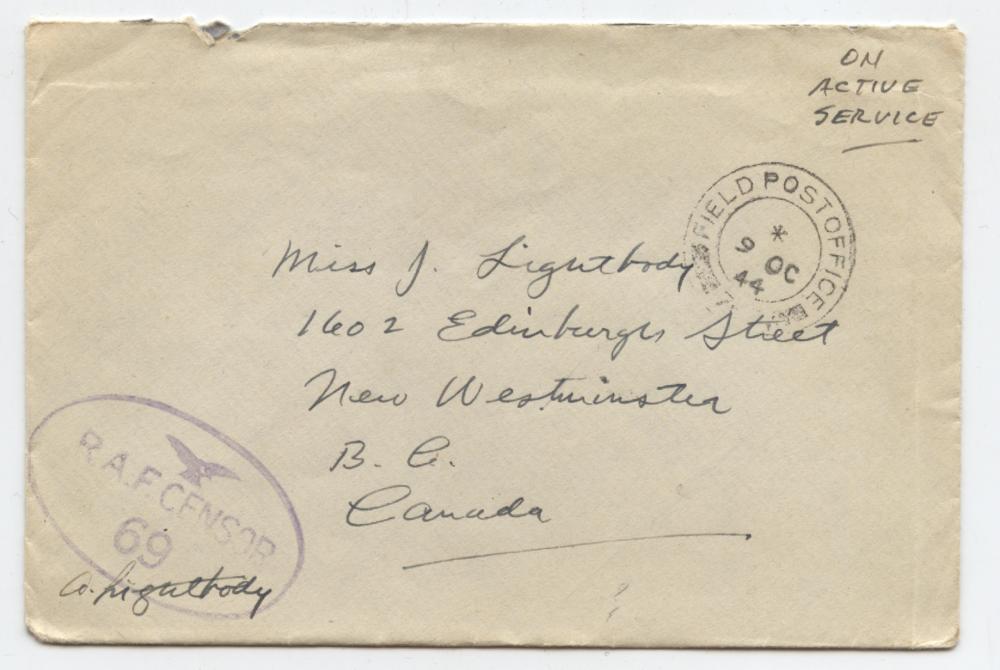 ON
ACTIVE
SERVICE
FIELD POST OFFICE
*
9 OC
44
Miss J. Lightbody
1602 Edinburgh Street
New Westminster
B. C.
Canada
R.A.F. CENSOR
69
A. Lightbody